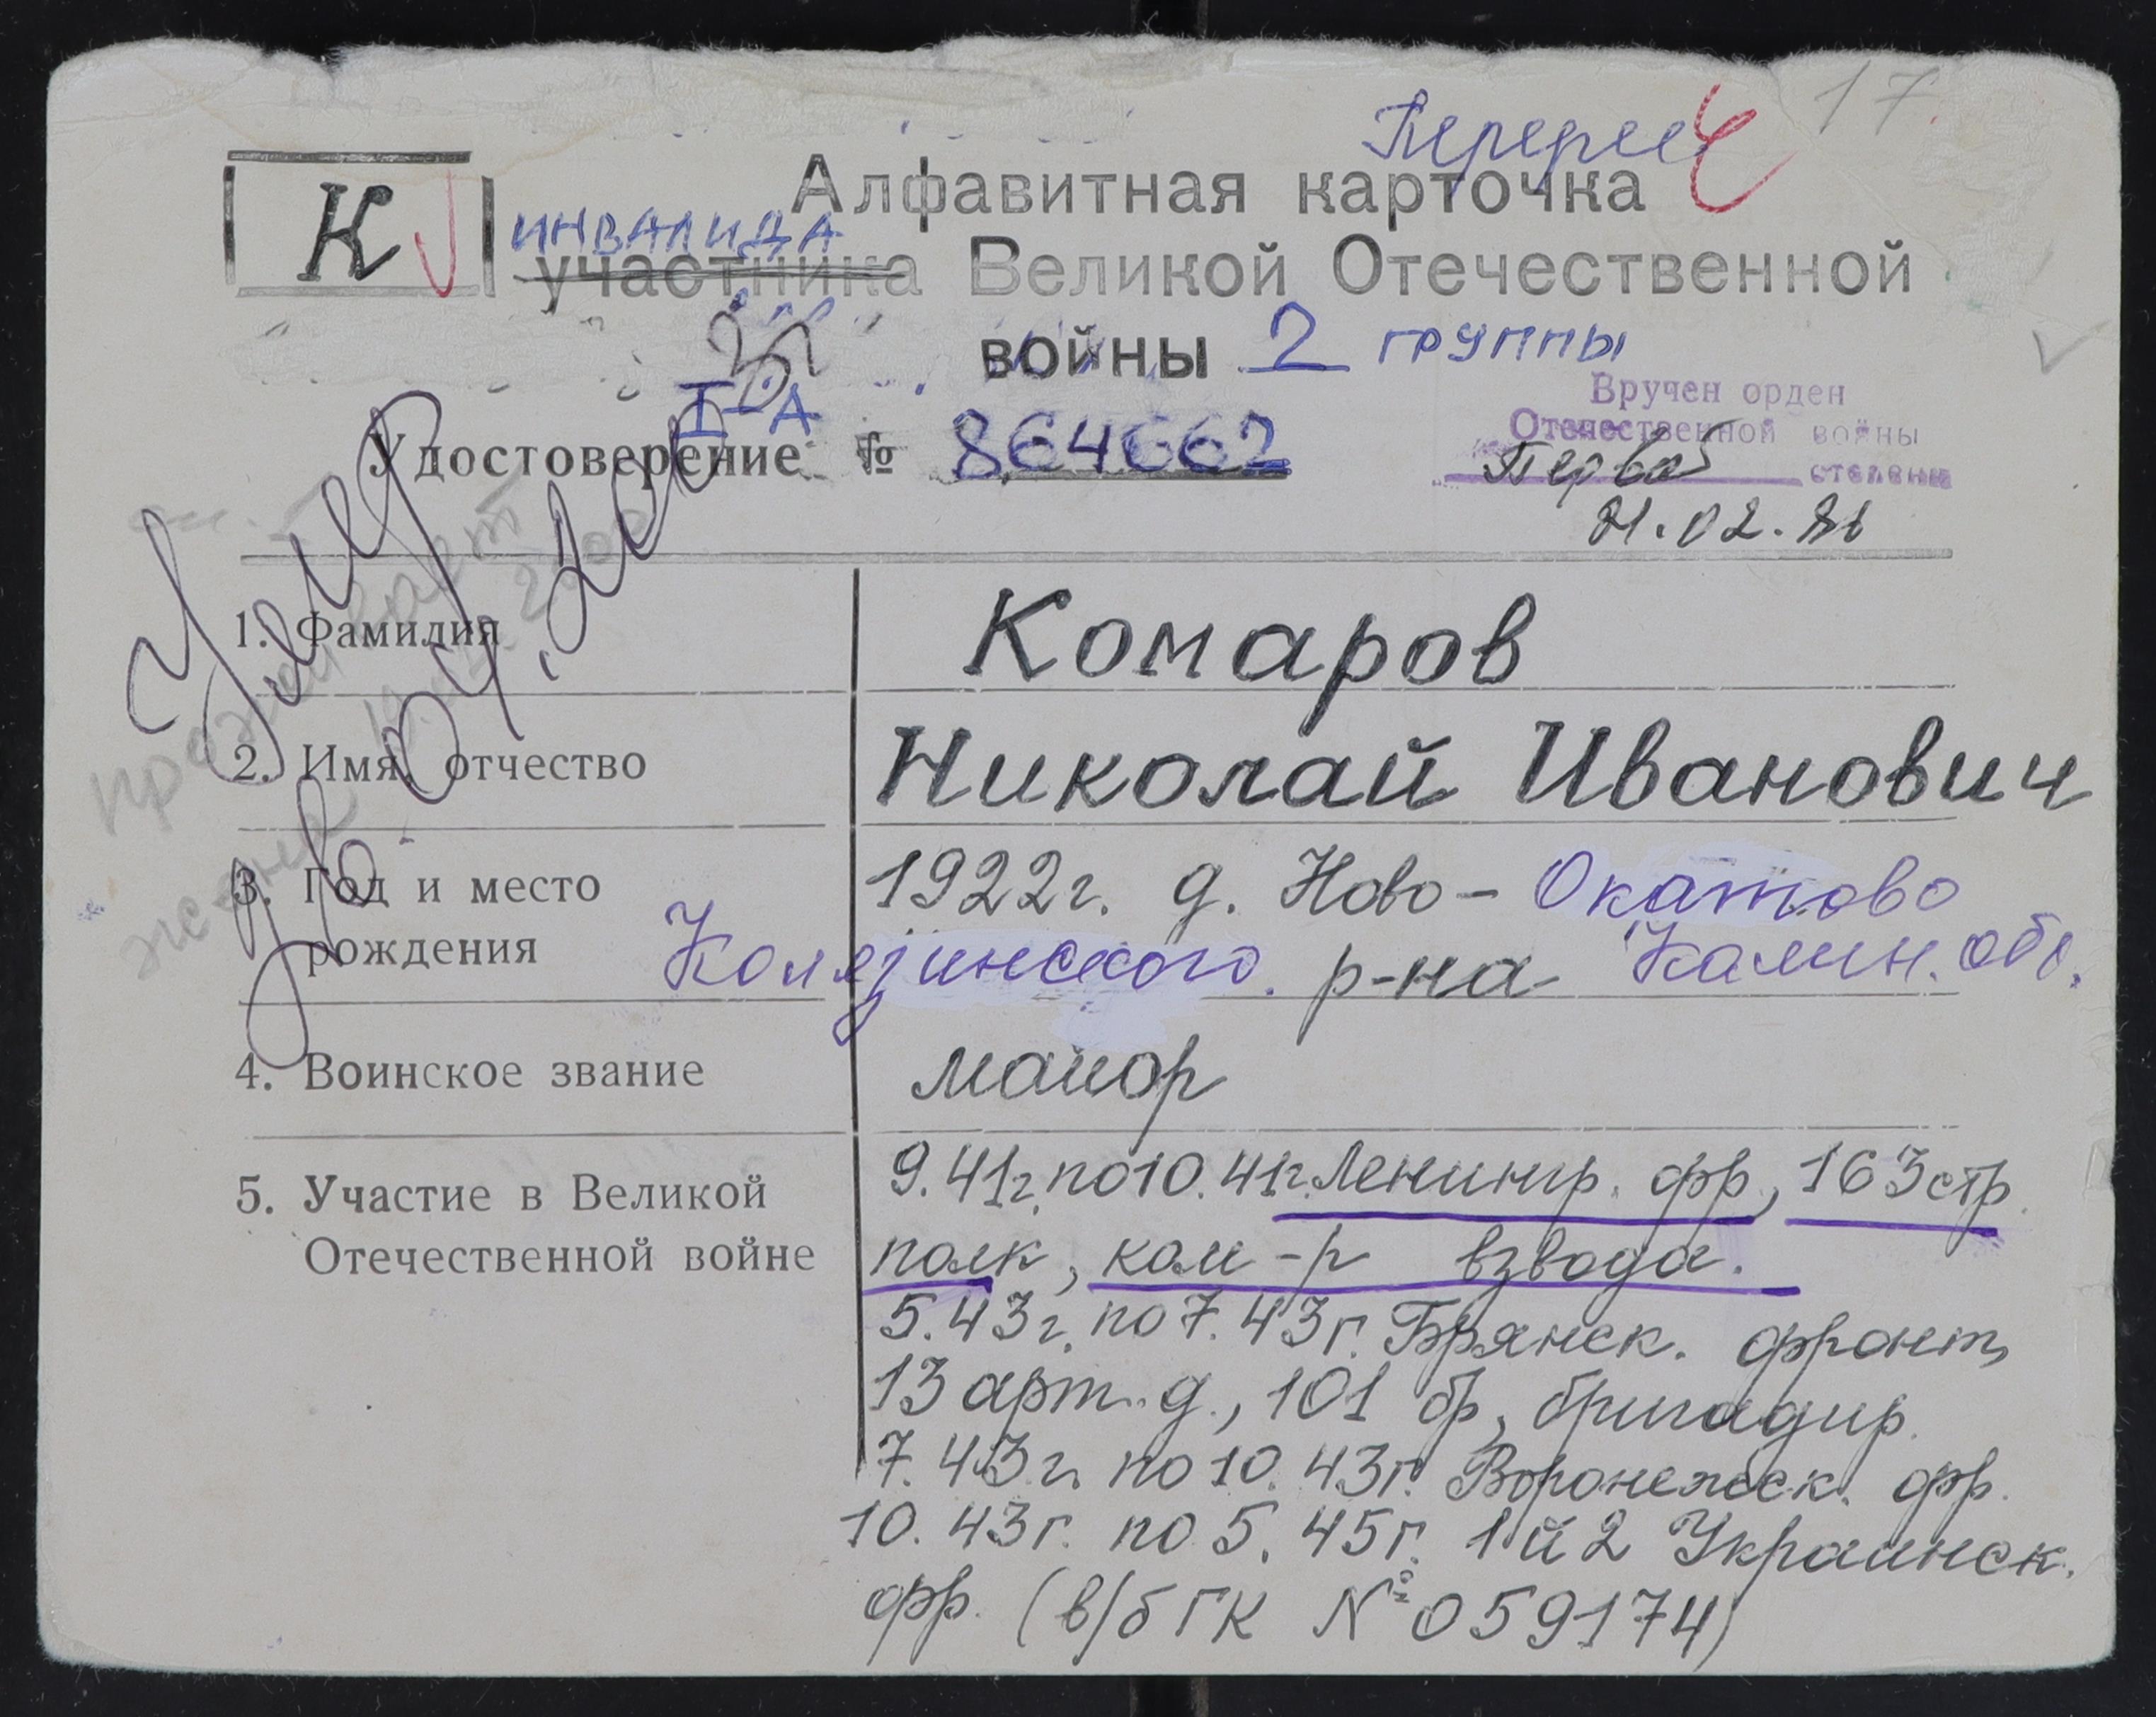 17
К
Алфавитная карточка
инвалида
участника Великой Отечественной
войны 2 группы
I-А
Удостоверение № 864662
Вручен орден
Отечественной войны
Первой степени
21.02.86
Умер
04.2001
проживает
жена
1. Фамилия Комаров
2. Имя, отчество Николай Иванович
3. Год и место 1922г. д. Ново-Окатово
рождения Колязинского р-на Калин. обл.
4. Воинское звание майор
5. Участие в Великой 9.41г. по 10.41г. Ленингр. фр, 163 стр.
Отечественной войне полк, ком-р взвода.
5.43г. по 7.43г. Брянск. фронт,
13 арт. д., 101 бр, бригадир.
7.43г. по 10.43г. Воронежск. фр.
10.43г. по 5.45г. 1 й 2 Украинск.
фр. (в/б ГК № 059174)